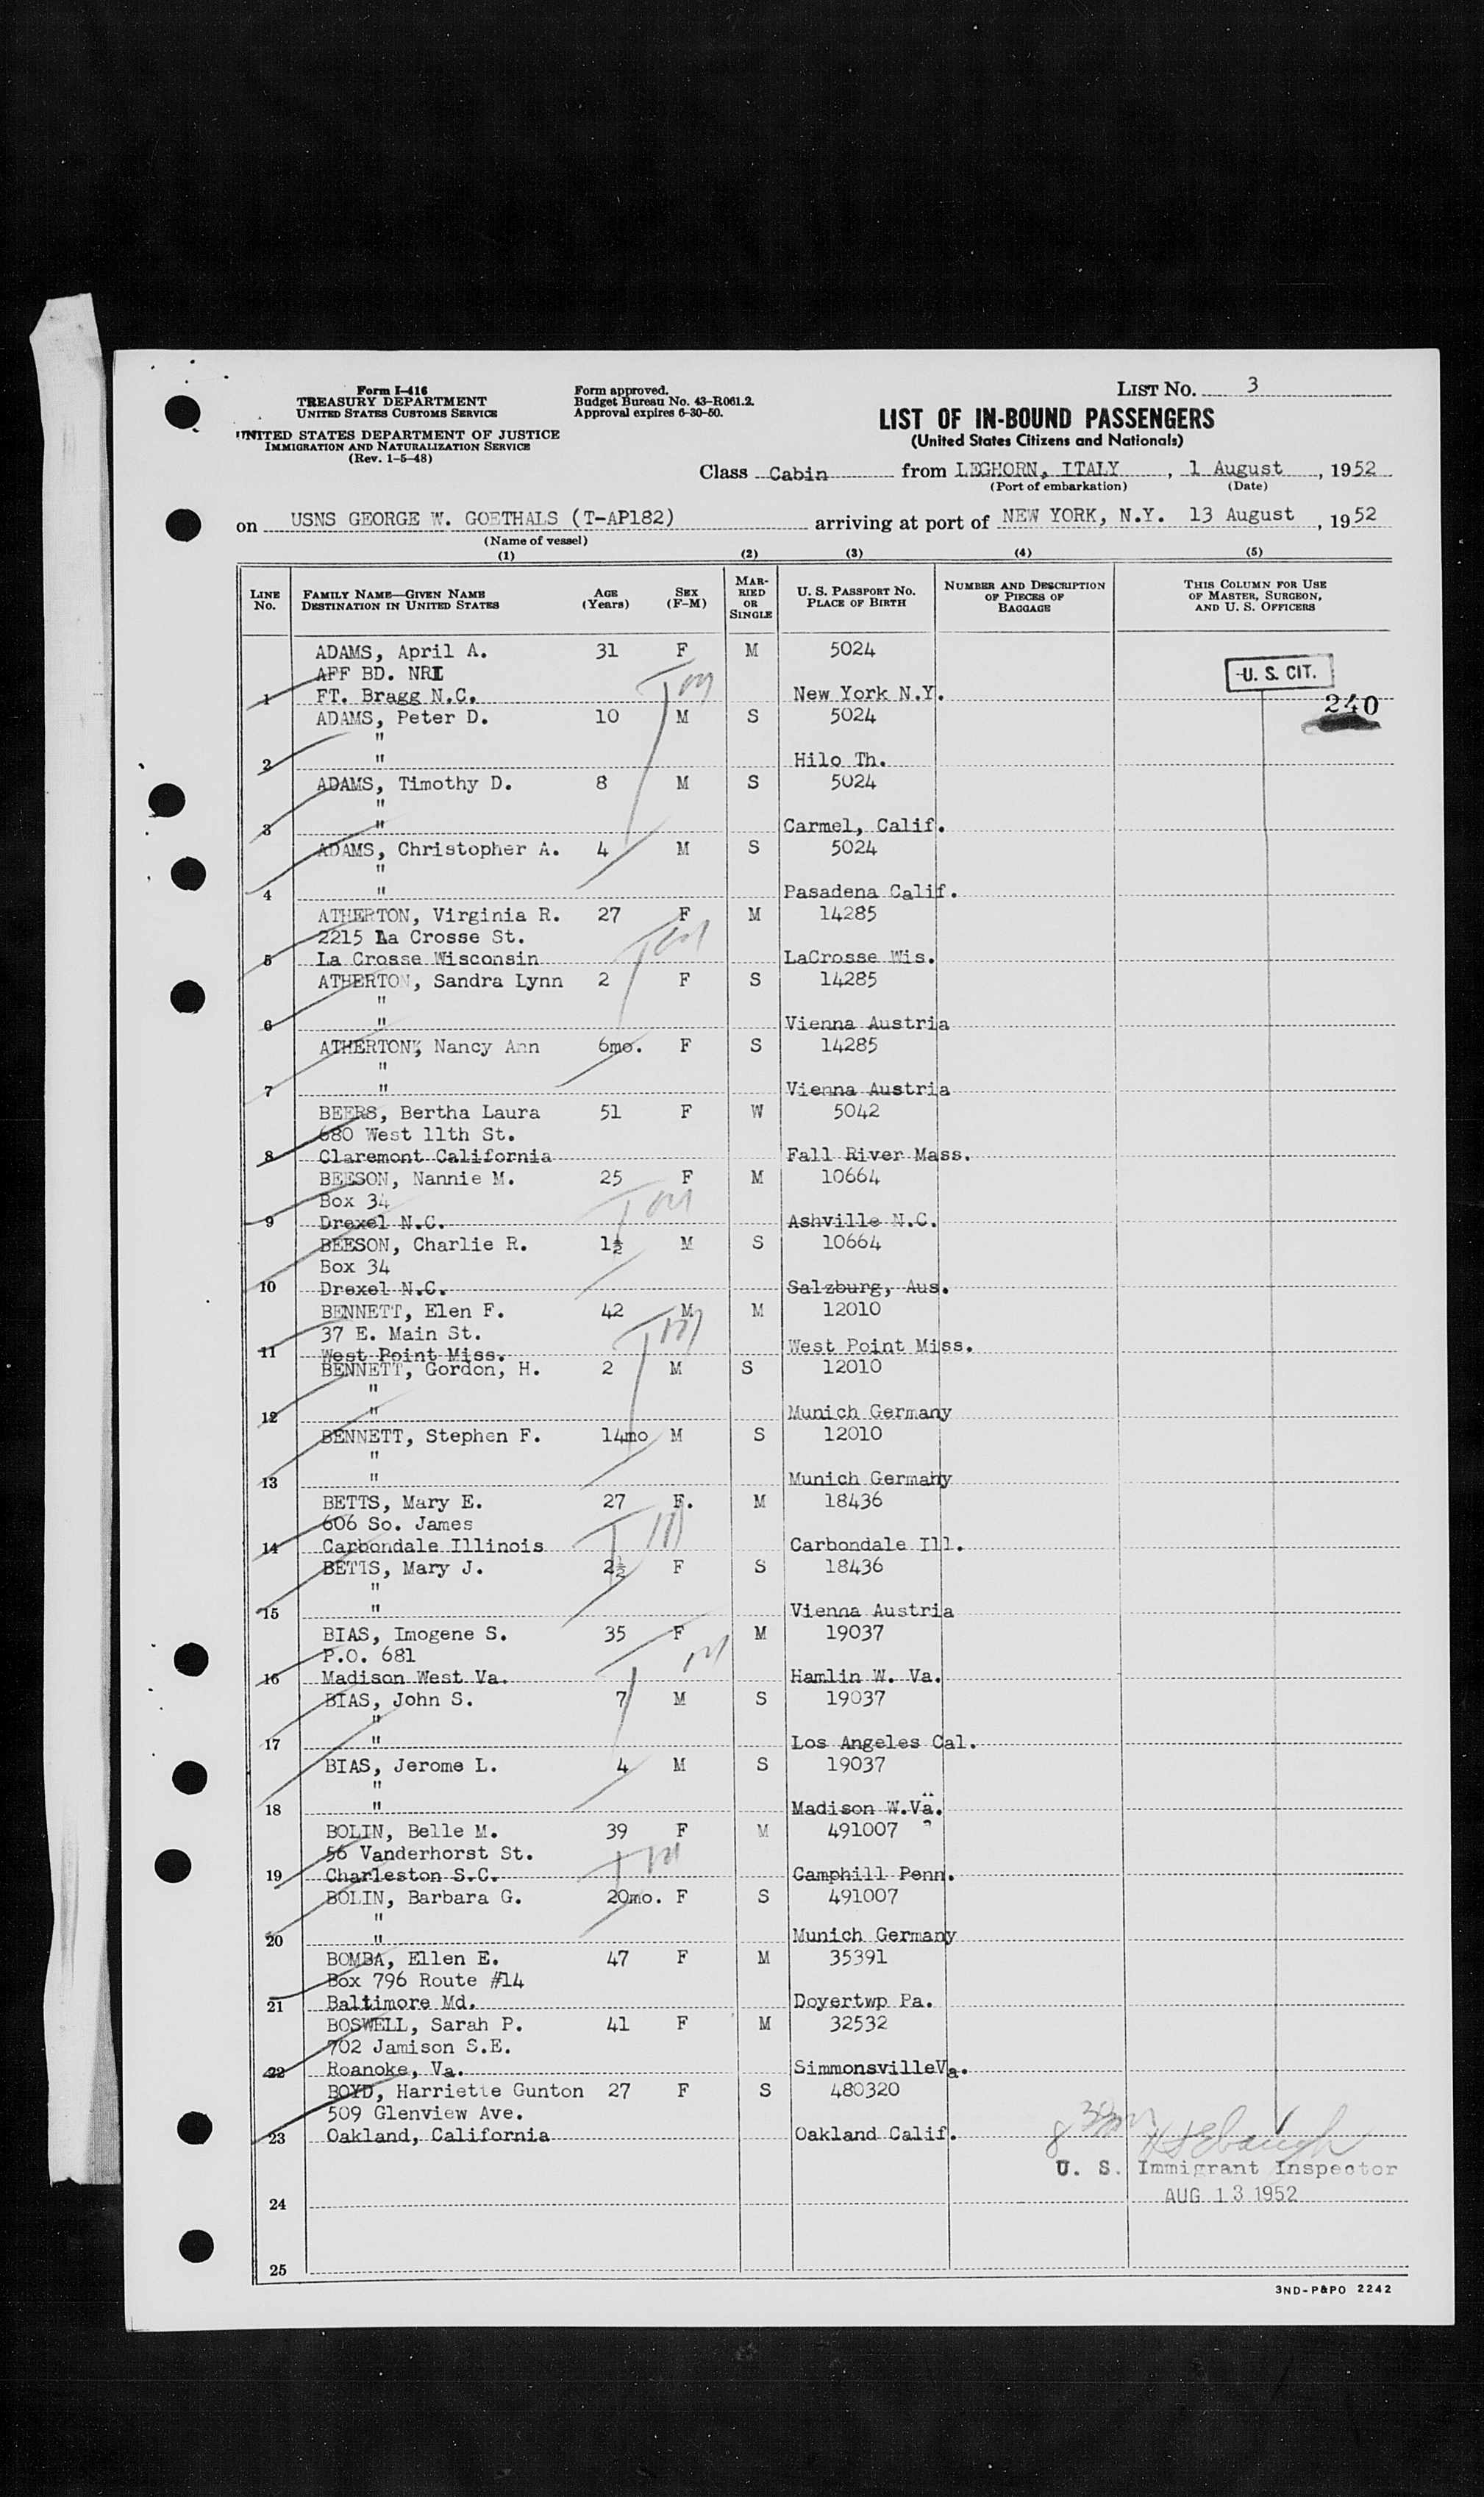 Form I-416
TREASURY DEPARTMENT
UNITED STATES CUSTOMS SERVICE
UNITED STATES DEPARTMENT OF JUSTICE
IMMIGRATION AND NATURALIZATION SERVICE
(Rev. 1-5-48)
Form approved.
Budget Bureau No. 43-R061.2.
Approval expires 6-30-50.
LIST No. 3
LIST OF IN-BOUND PASSENGERS
(United States Citizens and Nationals)
Class Cabin from LEGHORN, ITALY, 1 August, 1952
(Port of embarkation) (Date)
on USNS GEORGE W. GOETHALS (T-AP182) arriving at port of NEW YORK, N.Y. 13 August, 1952
(Name of vessel)
(1) (2) (3) (4) (5)
LINE No. FAMILY NAME—GIVEN NAME DESTINATION IN UNITED STATES AGE (Years) SEX (F-M) MARRIED OR SINGLE U. S. PASSPORT No. PLACE OF BIRTH NUMBER AND DESCRIPTION OF PIECES OF BAGGAGE THIS COLUMN FOR USE OF MASTER, SURGEON, AND U. S. OFFICERS
ADAMS, April A. 31 F M 5024
AFF BD. NRI
U. S. CIT.
1 FT. Bragg N.C. New York N.Y.
240
ADAMS, Peter D. 10 M S 5024
"
2 " Hilo Th.
ADAMS, Timothy D. 8 M S 5024
"
3 " Carmel, Calif.
ADAMS, Christopher A. 4 M S 5024
"
4 " Pasadena Calif.
ATHERTON, Virginia R. 27 F M 14285
2215 La Crosse St.
5 La Crosse Wisconsin LaCrosse Wis.
ATHERTON, Sandra Lynn 2 F S 14285
"
6 " Vienna Austria
ATHERTON, Nancy Ann 6mo. F S 14285
"
7 " Vienna Austria
BEERS, Bertha Laura 51 F W 5042
680 West 11th St.
8 Claremont California Fall River Mass.
BEESON, Nannie M. 25 F M 10664
Box 34
9 Drexel N.C. Ashville N.C.
BEESON, Charlie R. 1½ M S 10664
Box 34
10 Drexel N.C. Salzburg, Aus.
BENNETT, Elen F. 42 M M 12010
37 E. Main St.
11 West Point Miss. West Point Miss.
BENNETT, Gordon, H. 2 M S 12010
"
12 " Munich Germany
BENNETT, Stephen F. 14mo M S 12010
"
13 " Munich Germany
BETTS, Mary E. 27 F. M 18436
606 So. James
14 Carbondale Illinois Carbondale Ill.
BETTS, Mary J. 2½ F S 18436
"
15 " Vienna Austria
BIAS, Imogene S. 35 F M 19037
P.O. 681
16 Madison West Va. Hamlin W. Va.
BIAS, John S. 7 M S 19037
"
17 " Los Angeles Cal.
BIAS, Jerome L. 4 M S 19037
"
18 " Madison W.Va.
BOLIN, Belle M. 39 F M 491007
56 Vanderhorst St.
19 Charleston S.C. Camphill Penn.
BOLIN, Barbara G. 20mo. F S 491007
"
20 " Munich Germany
BOMBA, Ellen E. 47 F M 35391
Box 796 Route #14
21 Baltimore Md. Doyertwp Pa.
BOSWELL, Sarah P. 41 F M 32532
702 Jamison S.E.
22 Roanoke, Va. SimmonsvilleVa.
BOYD, Harriette Gunton 27 F S 480320
509 Glenview Ave.
23 Oakland, California Oakland Calif.
U. S. Immigrant Inspector
AUG 13 1952
24
25
3ND-P&PO 2242